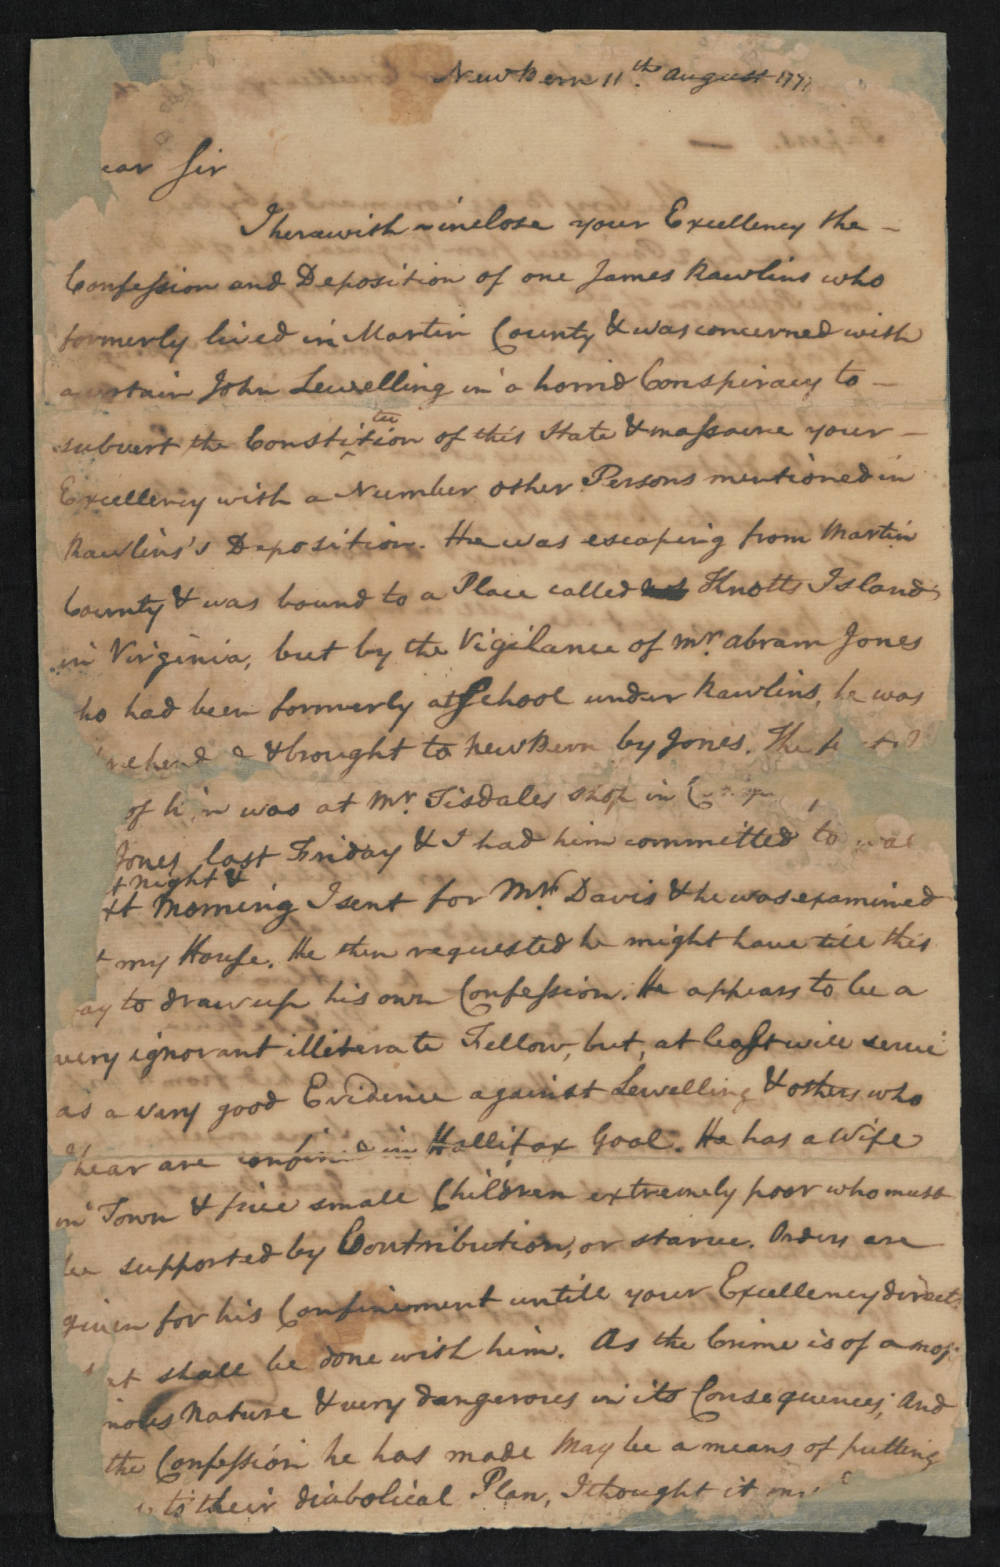 New Bern 11th. August 177
ear Sir
I herewith inclose your Excellency the
Confession and Deposition of one James Rawlins who
formerly lived in Martin County & was concerned with
a certain John Lewelling in a horrid Conspiracy to
subvert the Constitution of this State & massacre your
Excellency with a Number other Persons mentioned in
Rawlins's Deposition. He was escaping from Martin
County & was bound to a Place called Knotts Island,
in Virginia, but by the Vigilance of Mr. Abram Jones
ho had been formerly at School under Rawlins, he was
rehend & brought to New Bern by Jones. The
of him was at Mr. Tisdales shop in
Jones last Friday & I had him committed to
t night &
xt Morning I sent for Mr. Davis & he was examined
t my House. He then requested he might have till this
ay to draw up his own Confession. He appears to be a
very ignorant illiterate Fellow, but, at least will serve
as a very good Evidence against Lewelling & others who
I hear are confined in Hallifax Goal. He has a Wife
in Town & five small Children extremely poor who must
be supported by Contribution, or starve. Orders are
given for his Confinement untill your Excellency direct
at shall be done with him. As the Crime is of a mos
nous Nature & very dangerous in its Consequences, And
the Confession he has made May be a means of putting
to their diabolical Plan, I thought it